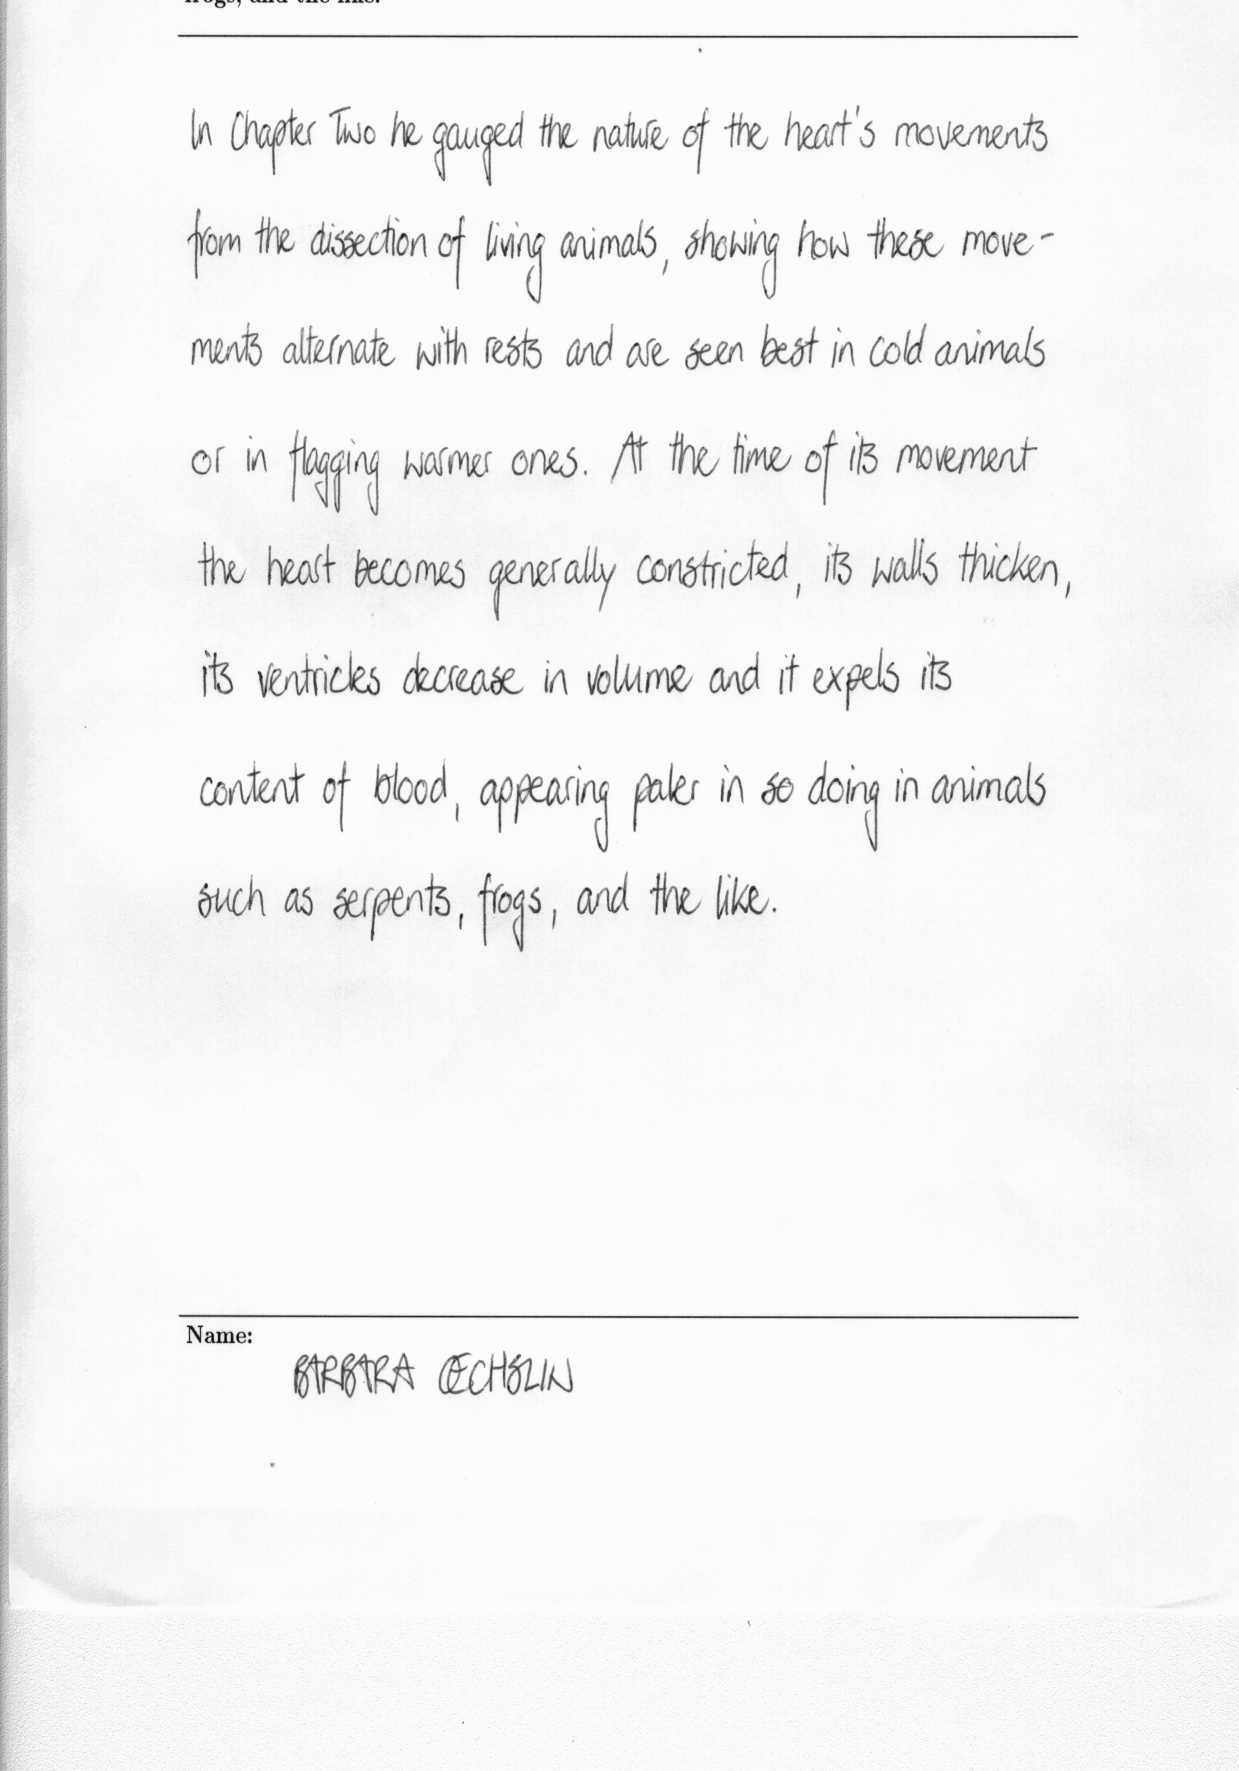 frogs, and the like.
In Chapter Two he gauged the nature of the heart's movements
from the dissection of living animals, showing how these move-
ments alternate with rests and are seen best in cold animals
or in flagging warmer ones. At the time of its movement
the heart becomes generally constricted, its walls thicken,
its ventricles decrease in volume and it expels its
content of blood, appearing paler in so doing in animals
such as serpents, frogs, and the like.
Name:
BARBARA OECHSLIN